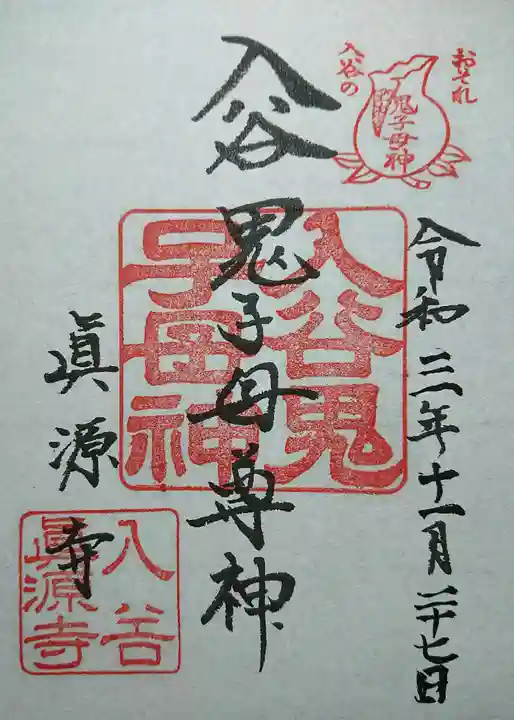 おそれ
入谷の
鬼子母神
令和三年十一月二十七日
入谷鬼子母尊神
入谷鬼
子母神
眞源寺
入谷
眞源寺